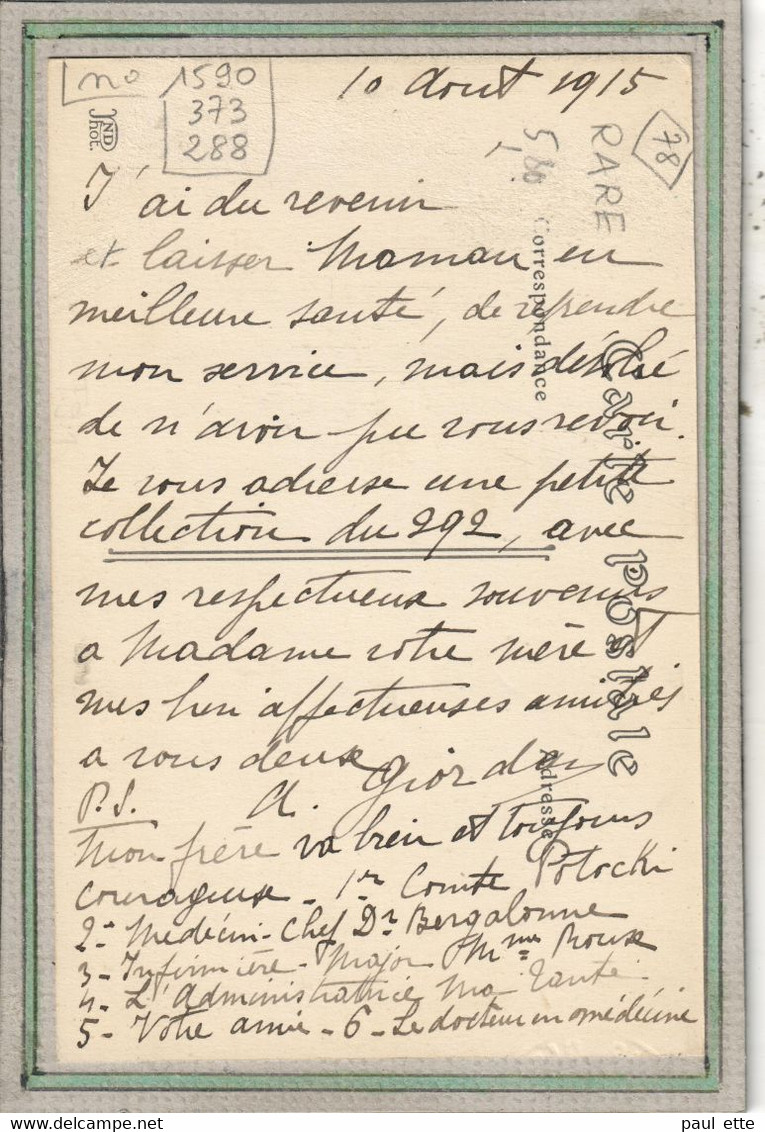 no 1590
373
288
10 Aout 1915
78
RARE
5,80
ND
Phot.
Correspondance
Carte postale
Adresse
J'ai du revenir
et laisser Maman en
meilleure santé, de reprendre
mon service, mais désolée
de n'avoir pu vous revoir.
Je vous adresse une petite
collection du 292, avec
mes respectueux souvenirs
a Madame votre mère et
mes bien affectueuses amitiés
a vous deux
P.S. A. Giordan
Mon frère va bien et toujours
courageux - 1er Comte Potocki
2- Medécin-Chef Dr Bergalonne
3- Infirmière-Major Mme Roux
4- L'Administratrice Ma Tante.
5- Votre amie - 6- Le docteur en médécine
paul ette